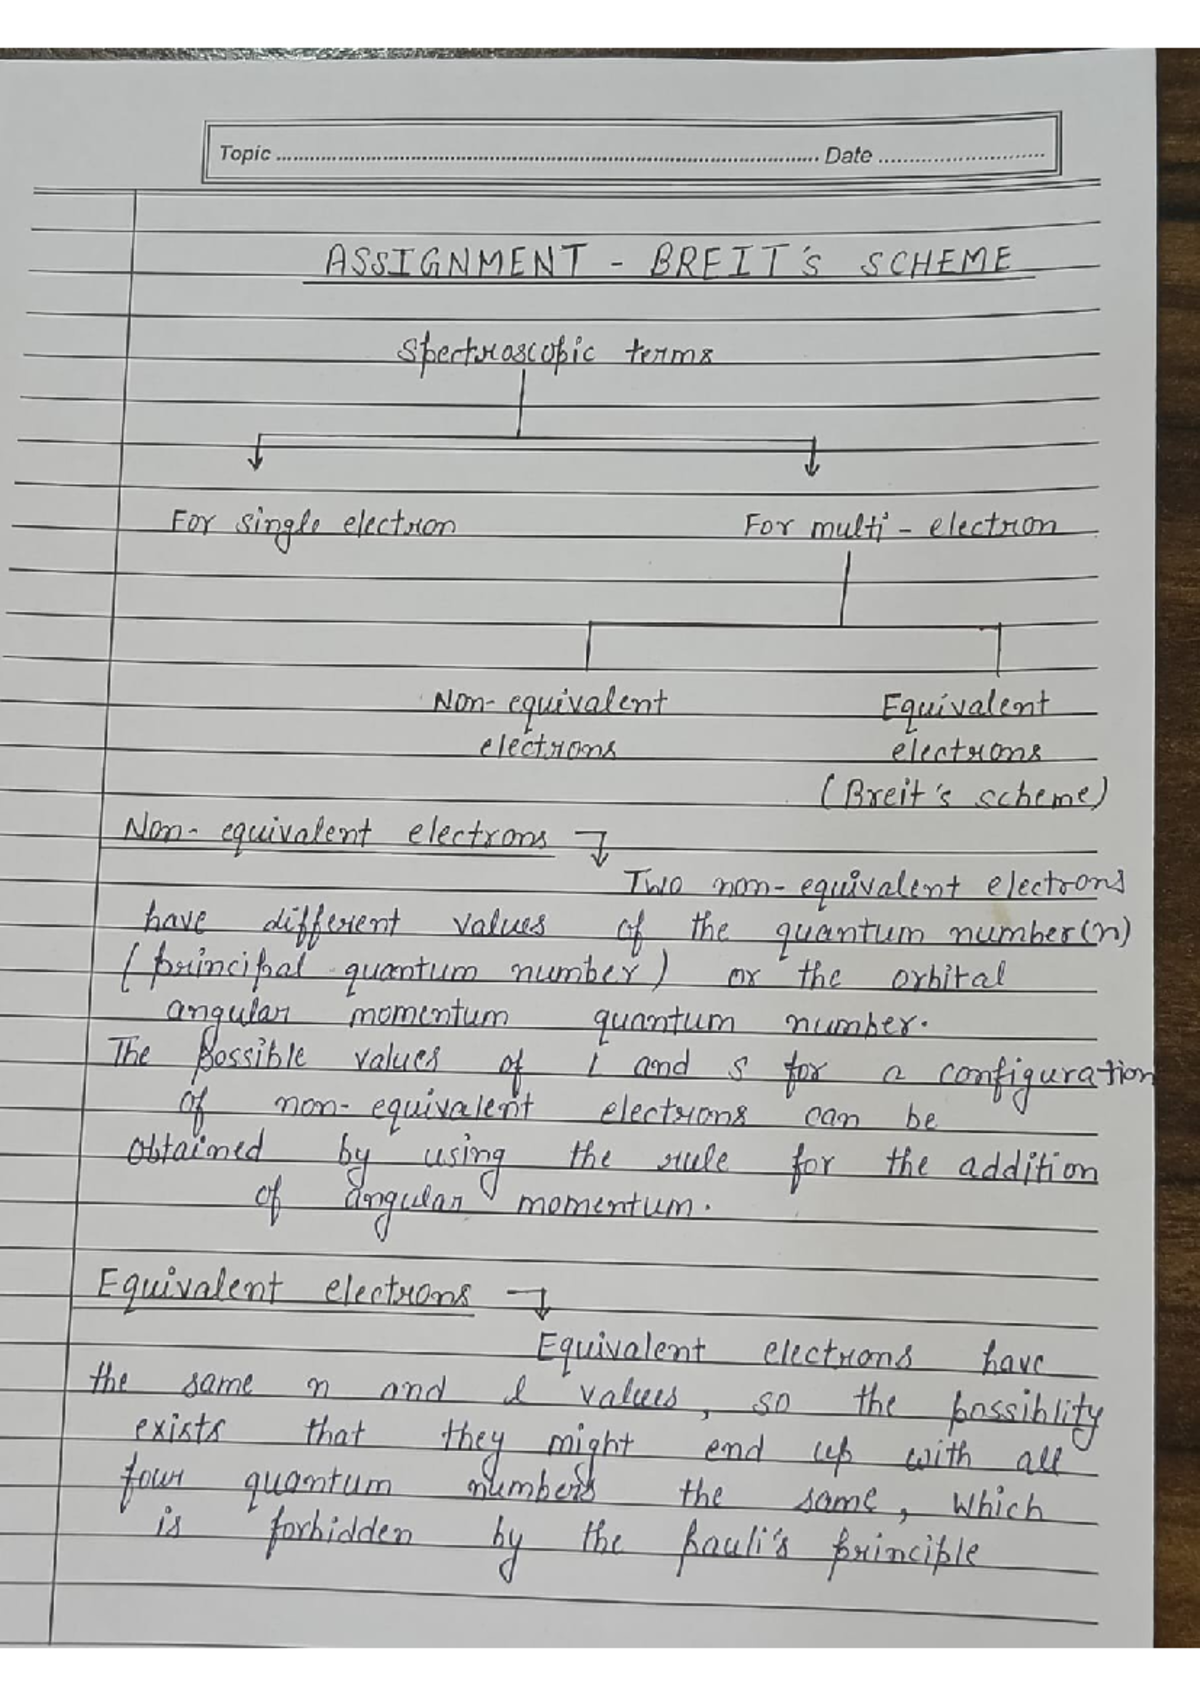 Topic ........................................ Date ....................
ASSIGNMENT - BREIT's SCHEME
Spectroscopic terms
For single electron For multi - electron
Non- equivalent Equivalent
electrons electrons
(Breit's scheme)
Non- equivalent electrons
Two non-equivalent electrons
have different values of the quantum number(n)
(principal quantum number) or the orbital
angular momentum quantum number.
The possible values of L and S for a configuration
of non-equivalent electrons can be
obtained by using the rule for the addition
of angular momentum.
Equivalent electrons
Equivalent electrons have
the same n and l values, so the possiblity
exists that they might end up with all
four quantum numbers the same, which
is forbidden by the Pauli's principle